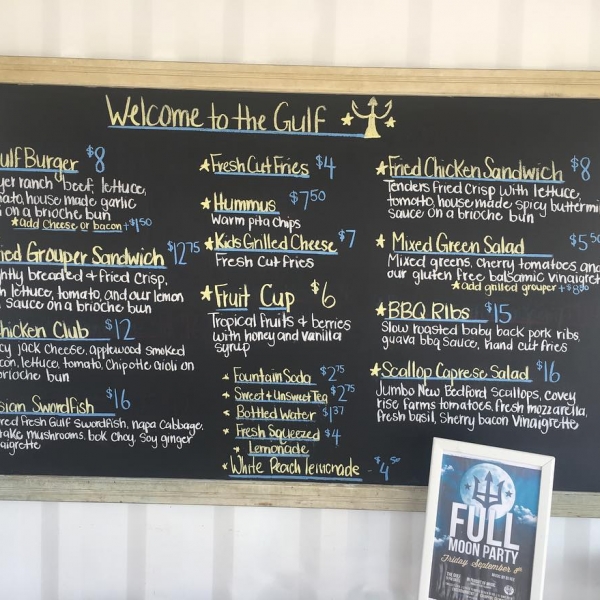 Welcome to the Gulf
ulf Burger $8
yer ranch beef, lettuce,
mato, house made garlic
on a brioche bun
add Cheese or bacon +$1.50
ied Grouper Sandwich $12.75
htly breaded & fried crisp,
h lettuce, tomato, and our lemon
sauce on a brioche bun
hicken Club $12
cy jack cheese, applewood smoked
con, lettuce, tomato, Chipotle aioli on
brioche bun
sian Swordfish $16
red fresh Gulf Swordfish, napa cabbage,
take mushrooms, bok choy, soy ginger
aigrette
Fresh Cut Fries $4
Hummus $7.50
Warm pita chips
Kids Grilled Cheese $7
Fresh Cut fries
Fruit Cup $6
Tropical fruits & berries
with honey and vanilla
syrup
Fountain Soda $2.75
Sweet + Unsweet Tea $2.75
Bottled Water $1.37
Fresh Squeezed $4
Lemonade
White Peach lemonade - $4.50
Fried Chicken Sandwich $8
Tenders fried crisp with lettuce,
tomatto, house made spicy buttermi
sauce on a brioche bun
Mixed Green Salad $5.50
Mixed greens, cherry tomatoes and
our gluten free balsamic vinaigret
add grilled grouper +$8.50
BBQ Ribs $15
Slow roasted baby back pork ribs,
guava bbq sauce, hand cut fries
Scallop Caprese Salad $16
Jumbo New Bedford scallops, covey
rise farms tomatoes, fresh mozzarella,
fresh basil, sherry bacon vinaigrette
FULL
MOON PARTY
Friday September 8th